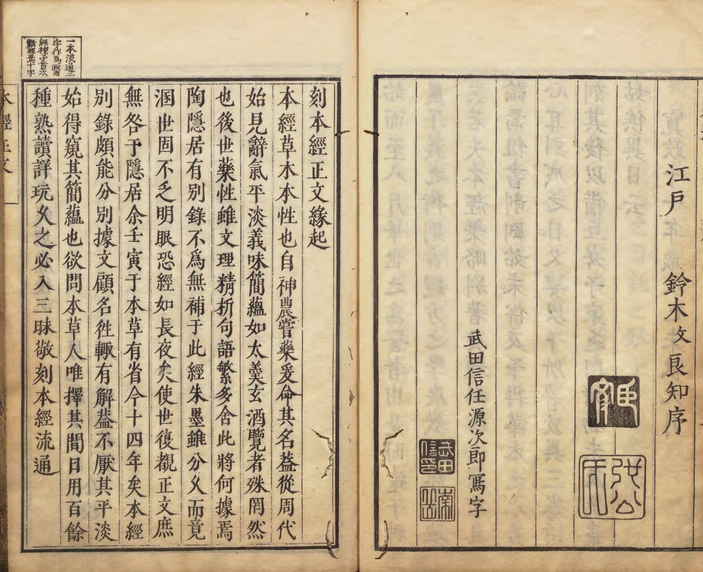 江戸　鈴木文良知序
武田信任源次郎寫字
一本流通之
刻本經正文緣起
本經草木本性也自神農嘗藥爰命其名葢從周代
始見辭氣平淡義味簡蘊如太羹玄酒覽者殊罔然
也後世藥性雖文理精折句語繁多舍此將何據焉
陶隱居有別錄不爲無補于此經朱墨雖分久而竟
溷世固不乏明眼恐經如長夜矣使世復覩正文庶
無咎于隱居余壬寅于本草有省今十四年矣本經
別錄頗能分別據文顧名徃輙有解葢不厭其平淡
始得窺其簡蘊也欲問本草人唯擇其間日用百餘
種熟讀詳玩久之必入三昧敬刻本經流通
本經正文